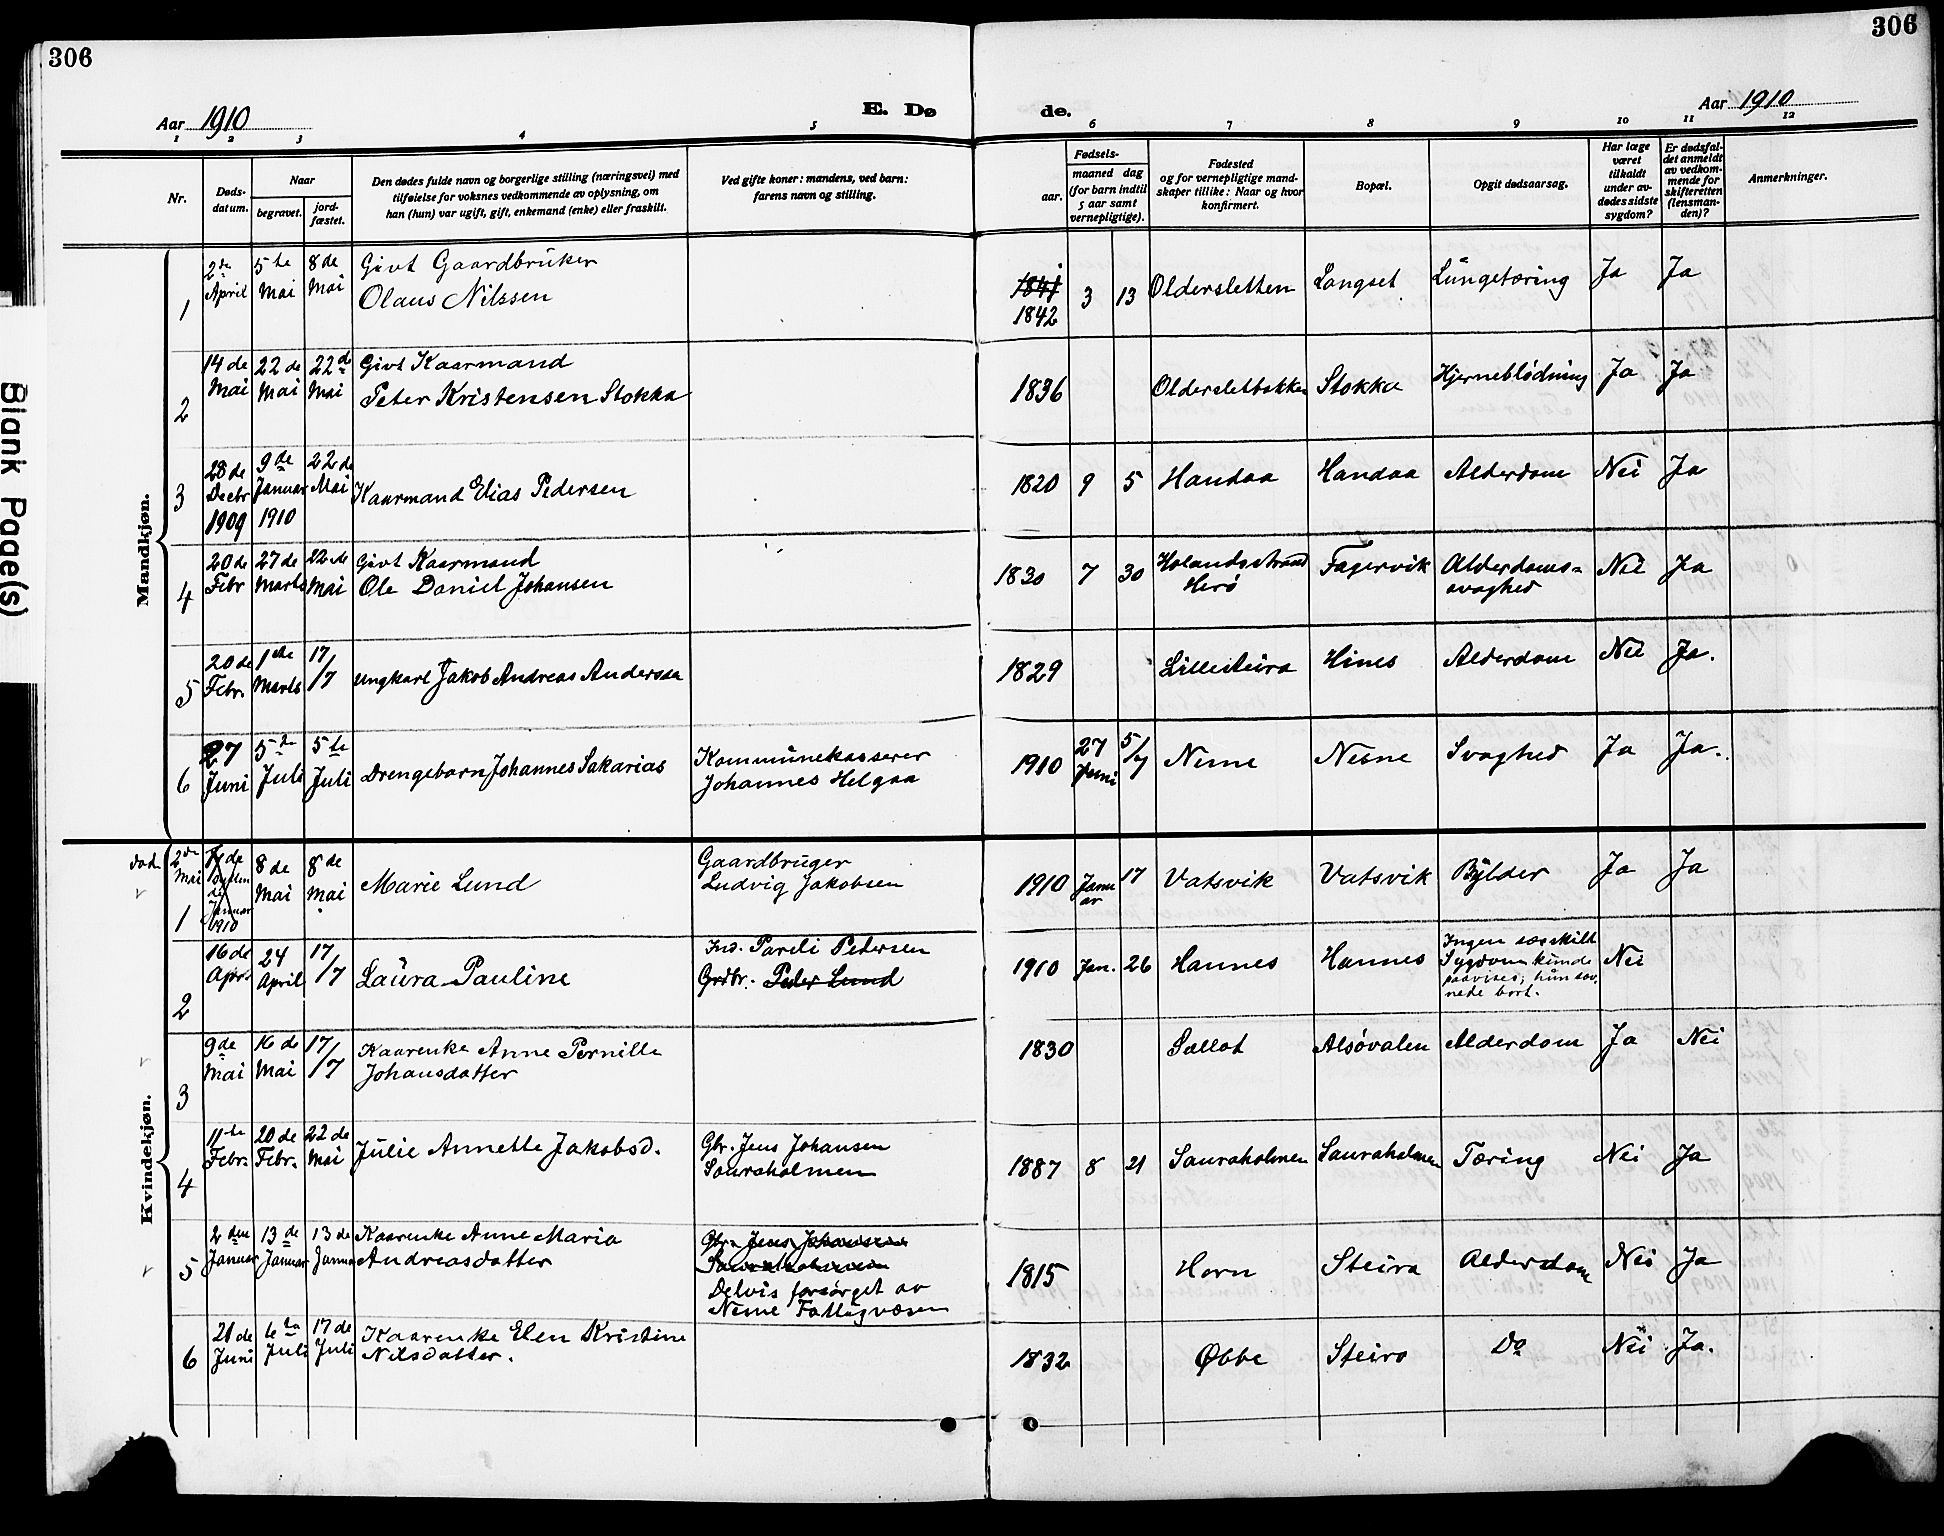 306
306
Aar 1910
E. Dø
de.
Aar 1910
1 2 3 4 5 6 7 8 9 10 11 12
Nr.
Døds-
datum.
Naar
begravet.
jord-
fæstet.
Den dødes fulde navn og borgerlige stilling (næringsvei) med
tilføielse for voksnes vedkommende av oplysning, om
han (hun) var ugift, gift, enkemand (enke) eller fraskilt.
Ved gifte koner: mandens, ved barn:
farens navn og stilling.
Fødsels-
aar.
maaned dag
(for barn indtil
5 aar samt
vernepligtige).
Fødested
og for vernepligtige mand-
skaper tillike: Naar og hvor
konfirmert.
Bopæl.
Opgit dødsaarsag.
Har læge
været
tilkaldt
under av-
dødes sidste
sygdom?
Er dødsfal-
det anmeldt
av vedkom-
mende for
skifteretten
(lensman-
den)?
Anmerkninger.
Mandkjøn.
1
2de April
5te Mai
8de Mai
Givt Gaardbruker
Olaus Nilssen
1841
1842
3 13 Oldersletten Langset Lungetæring Ja Ja
2
14de Mai
22de Mai
22de Mai
Givt Kaarmand
Peter Kristensen Stokka
1836 Oldersletbakken Stokka Hjerneblödning Ja Ja
3
28de Decbr 1909
9de Januar 1910
22de Mai
Kaarmand Elias Pedersen
1820 9 5 Handaa Handaa Alderdom Nei Ja
4
20de Febr
27de Marts
22de Mai
Givt Kaarmand
Ole Daniel Johansen
1830 7 30 Holandsstrand
Herö
Fagervik Alderdoms-
svaghed
Nei Ja
5
20de Febr.
1ste Marts
17/7
Ungkarl Jakob Andreas Andersen
1829 Hines Alderdom Nei Ja.
6
27 Juni
5te Juli
5te Juli
Drengebarn Johannes Sakarias
Kommunekasserer
Johannes Helgaa
1910 27 Juni 5/7 Nesne Nesne Svaghed Ja Ja.
Kvindekjøn.
död
1
2de Mai
Januar
1910
8de Mai
8de Mai
Marie Lund
Gaardbruger
Ludvig Jakobsen
1910 Januar 17 Vatsvik Vatsvik Bylder Ja Ja
2
16de April
24 April
17/7
Laura Pauline
Ind. Pareli Petersen
Grdbr. Peder Lund
1910 Jan. 26 Hannes Hannes
Ingen særskilt
Sygdom kunde
paavises; hun sov-
nede bort.
Nei
3
9de Mai
16de Mai
17/7
Kaarenke Anne Pernille
Johansdatter
1830 Alsøvalen Alderdom Ja Nei
4
11te Febr.
20de Febr.
22de Mai
Julie Annette Jakobsd.
Gbr. Jens Johansen
Sauraholmen
1887 8 21 Sauraholmen Sauraholmen Tæring Nei Ja
5
2den Januar
13de Januar
13de Januar
Kaarenke Anne Maria
Andreasdatter
Gbr. Jens Johansen
Sauraholmen
Delvis forsörget av
Nesne Fattigvæsen
1815 Horn Steiro Alderdom Nei Ja
6
21de Juni
6te Juli
17de Juli
Kaarenke Elen Kristine
Nilsdatter.
1832 Øbbe Steiro Do Nei Ja.
Blank Page(s)